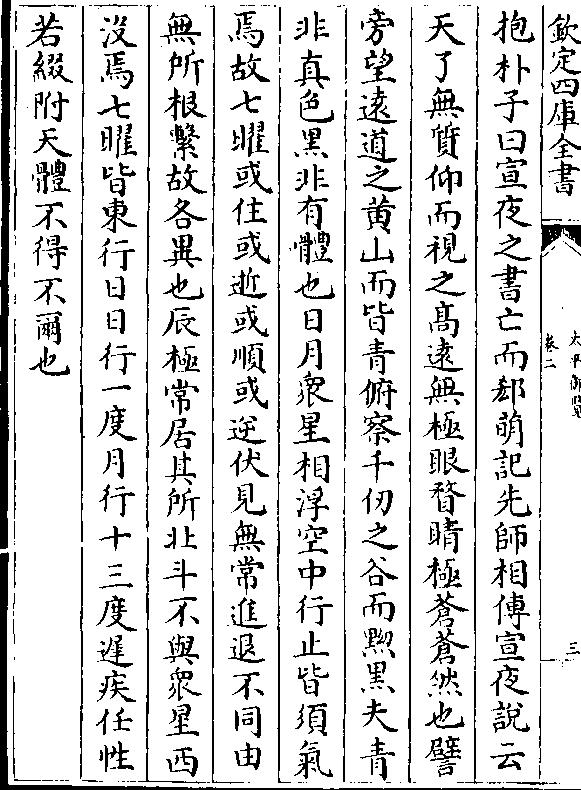 欽定四庫全書
太平御覽
卷二
三
抱朴子曰宣夜之書亡而郄萌記先師相傳宣夜說云
天了無質仰而視之髙遠無極眼瞀睛極蒼蒼然也譬
旁望遠道之黄山而皆青俯察千仞之谷而黝黒夫青
非真色黒非有體也日月衆星相浮空中行止皆須氣
焉故七曜或住或逝或順或逆伏見無常進退不同由
無所根繫故各異也辰極常居其所北斗不與衆星西
沒焉七曜皆東行日日行一度月行十三度遲疾任性
若綴附天體不得不爾也